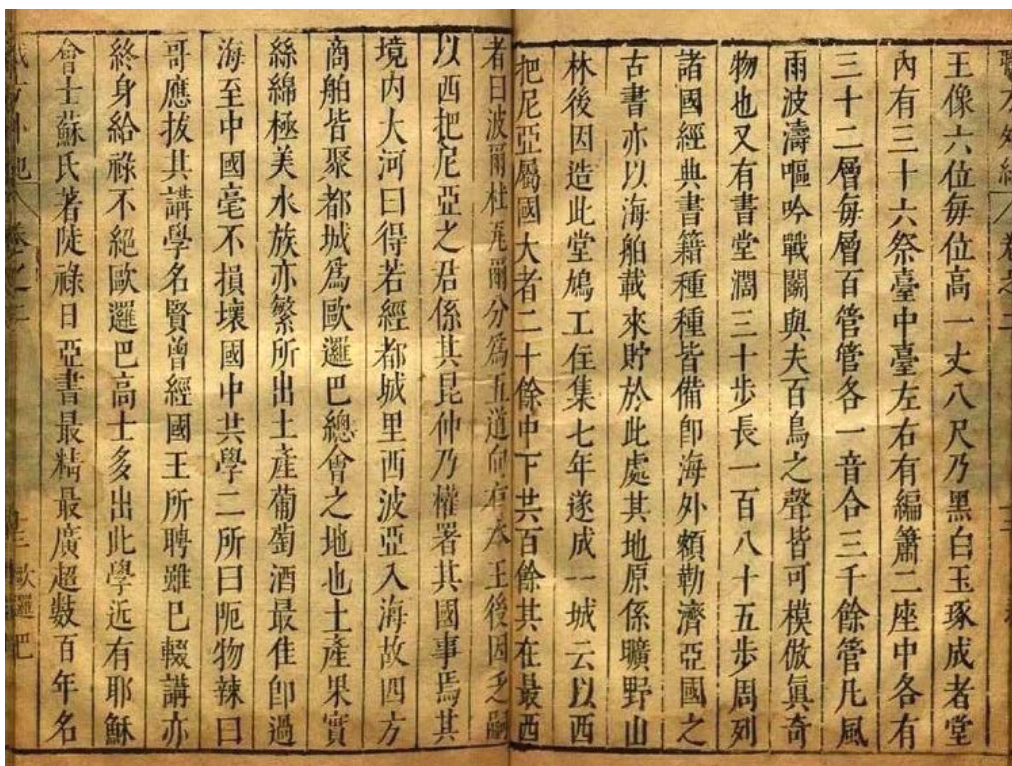 職方外紀 卷之二
王像六位每位高一丈八尺乃黑白玉琢成者堂
內有三十六祭臺中臺左右有編簫二座中各有
三十二層每層百管管各一音合三千餘管凡風
雨波濤嘔吟戰鬬與夫百鳥之聲皆可模倣眞奇
物也又有書堂濶三十步長一百八十五步周列
諸國經典書籍種種皆備卽海外額勒濟亞國之
古書亦以海舶載來貯於此處其地原係曠野山
林後因造此堂鳩工住集七年遂成一城云以西
把尼亞屬國大者二十餘中下共百餘其在最西
者曰波爾杜瓦爾分爲五道向有本王後因乏嗣
以西把尼亞之君係其昆仲乃權署其國事焉其
境內大河曰得若經都城里西波亞入海故四方
商舶皆聚都城爲歐邏巴總會之地也土產果實
絲綿極美水族亦繁所出土產葡萄酒最佳卽過
海至中國毫不損壞國中共學二所曰阨物辣曰
哥應拔其講學名賢曾經國王所聘雖已輟講亦
終身給祿不絕歐邏巴高士多出此學近有耶穌
會士蘇氏著陡祿日亞書最精最廣超數百年名
職方外紀 卷之二